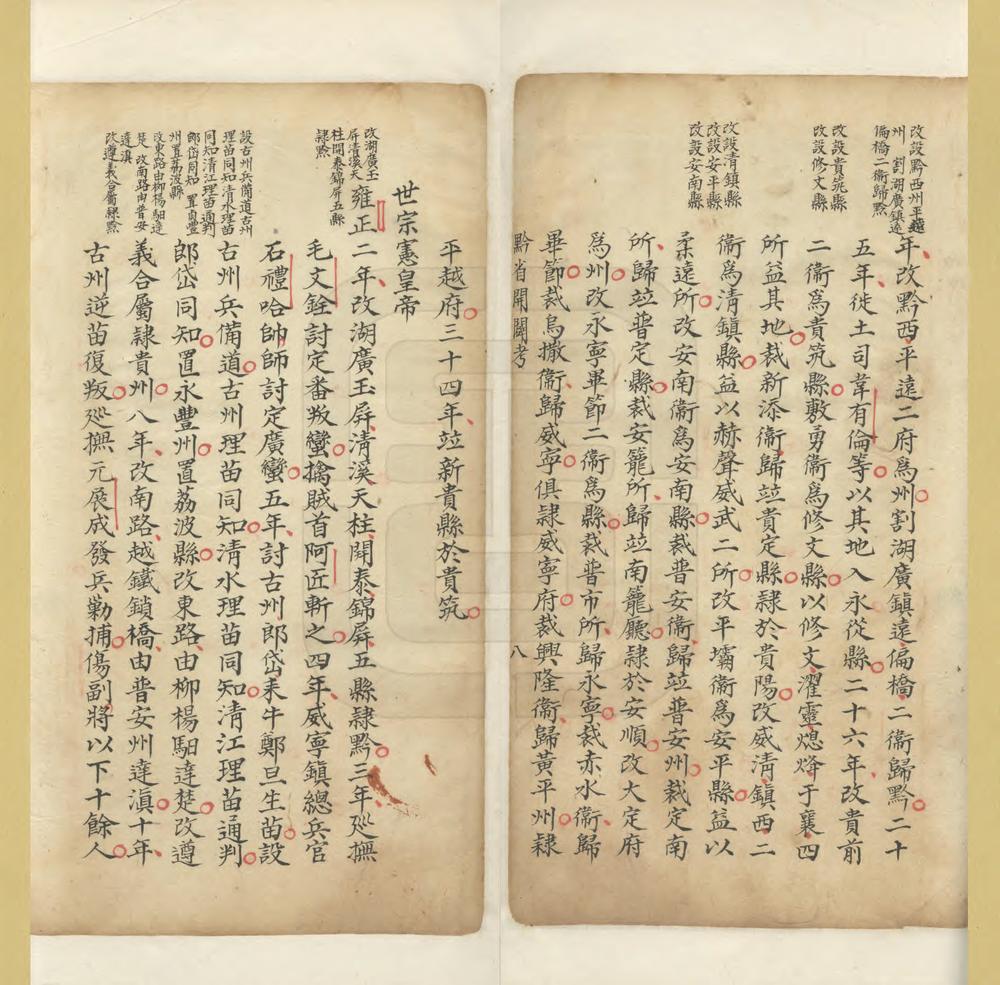 改設黔西州平越
州　割湖廣鎮遠
偏橋二衞歸黔
改設貴筑縣
改設修文縣
改設清鎮縣
改設安平縣
改設安南縣
年改黔西平遠二府爲州割湖廣鎮遠偏橋二衞歸黔二十
五年徙土司韋有倫等以其地入永從縣二十六年改貴前
二衞爲貴筑縣敷勇衞爲修文縣以修文濯靈熄烽于襄四
所益其地裁新添衞歸竝貴定縣隸於貴陽改威清鎮西二
衞爲清鎮縣益以赫聲威武二所改平壩衞爲安平縣益以
柔遠所改安南衞爲安南縣裁普安衞歸竝普安州裁定南
所歸竝普定縣裁安籠所歸竝南籠廳隸於安順改大定府
爲州改永寧畢節二衞爲縣裁普市所歸永寧裁赤水衞歸
畢節裁烏撒衞歸威寧俱隸威寧府裁興隆衞歸黃平州隸
黔省開闢考
八
平越府三十四年竝新貴縣於貴筑
世宗憲皇帝
改湖廣玉
屏清溪天
柱開泰錦屏五縣
隸黔
雍正二年改湖廣玉屏清溪天柱開泰錦屏五縣隸黔三年廵撫
毛文銓討定番叛蠻擒賊首阿匠斬之四年威寧鎮總兵官
石禮哈帥師討定廣蠻五年討古州郎岱耒牛鄭旦生苗設
設古州兵備道古州
理苗同知清水理苗
同知清江理苗通判
郎岱同知　置永豐
州置荔波縣
改東路由柳楊馹達
楚　改南路由普安
達滇
改遵義合屬隸黔
古州兵備道古州理苗同知清水理苗同知清江理苗通判
郎岱同知置永豐州置荔波縣改東路由柳楊馹達楚改遵
義合屬隸貴州八年改南路越鐵鎖橋由普安州達滇十年
古州逆苗復叛廵撫元展成發兵勦捕傷副將以下十餘人